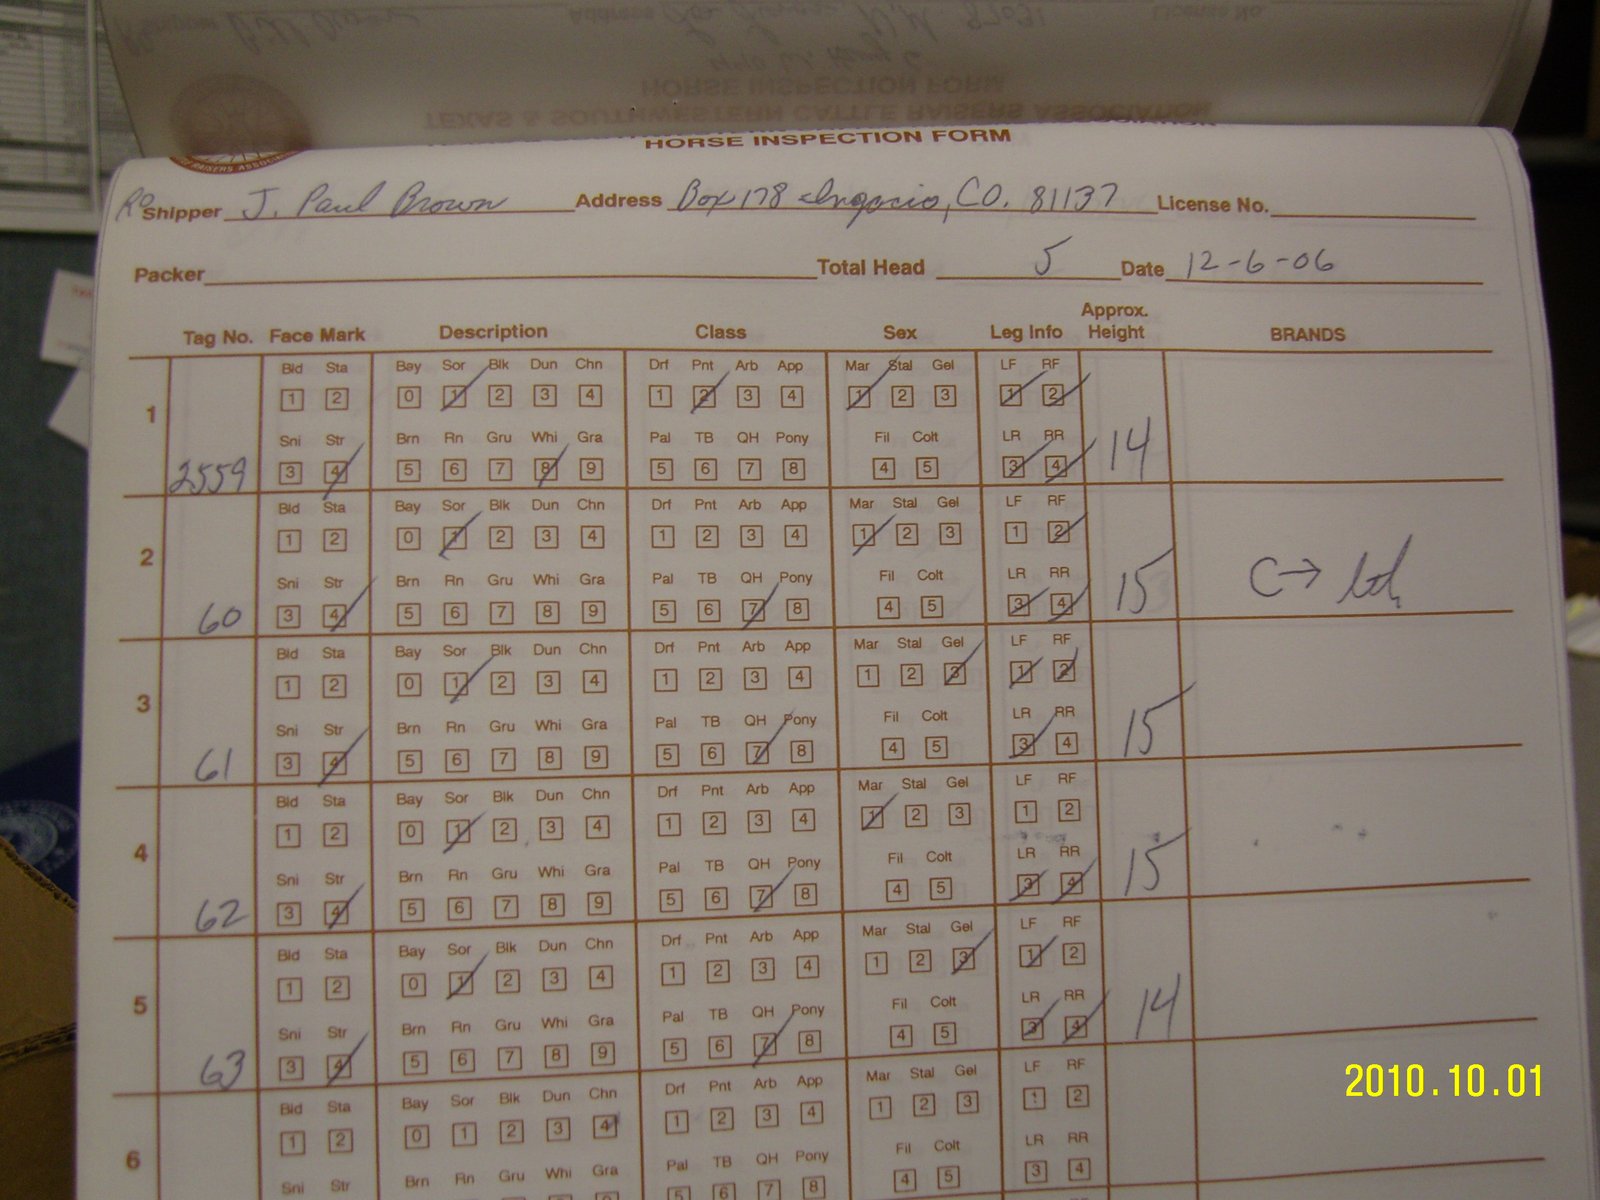 TEXAS & SOUTHWESTERN CATTLE RAISERS ASSOCIATION
HORSE INSPECTION FORM
HORSE INSPECTION FORM
RAISERS ASSOCIATION
Ro Shipper J. Paul Brown Address Box 178 Ingacio, CO. 81137 License No.
Packer Total Head 5 Date 12-6-06
Tag No. Face Mark Description Class Sex Leg Info Approx. Height BRANDS
Bld Sta Bay Sor Blk Dun Chn Drf Pnt Arb App Mar Stal Gel LF RF
1 1 2 0 1 2 3 4 1 2 3 4 1 2 3 1 2
Sni Str Brn Rn Gru Whi Gra Pal TB QH Pony Fil Colt LR RR
2559 3 4 5 6 7 8 9 5 6 7 8 4 5 3 4 14
Bld Sta Bay Sor Blk Dun Chn Drf Pnt Arb App Mar Stal Gel LF RF
2 1 2 0 1 2 3 4 1 2 3 4 1 2 3 1 2
Sni Str Brn Rn Gru Whi Gra Pal TB QH Pony Fil Colt LR RR
60 3 4 5 6 7 8 9 5 6 7 8 4 5 3 4 15 C→
Bld Sta Bay Sor Blk Dun Chn Drf Pnt Arb App Mar Stal Gel LF RF
3 1 2 0 1 2 3 4 1 2 3 4 1 2 3 1 2
Sni Str Brn Rn Gru Whi Gra Pal TB QH Pony Fil Colt LR RR
61 3 4 5 6 7 8 9 5 6 7 8 4 5 3 4 15
Bld Sta Bay Sor Blk Dun Chn Drf Pnt Arb App Mar Stal Gel LF RF
4 1 2 0 1 2 3 4 1 2 3 4 1 2 3 1 2
Sni Str Brn Rn Gru Whi Gra Pal TB QH Pony Fil Colt LR RR
62 3 4 5 6 7 8 9 5 6 7 8 4 5 3 4 15
Bld Sta Bay Sor Blk Dun Chn Drf Pnt Arb App Mar Stal Gel LF RF
5 1 2 0 1 2 3 4 1 2 3 4 1 2 3 1 2
Sni Str Brn Rn Gru Whi Gra Pal TB QH Pony Fil Colt LR RR
63 3 4 5 6 7 8 9 5 6 7 8 4 5 3 4 14
Bld Sta Bay Sor Blk Dun Chn Drf Pnt Arb App Mar Stal Gel LF RF
6 1 2 0 1 2 3 4 1 2 3 4 1 2 3 1 2
Sni Str Brn Rn Gru Whi Gra Pal TB QH Pony Fil Colt LR RR
5 6 7 8 4 5 3 4
2010.10.01